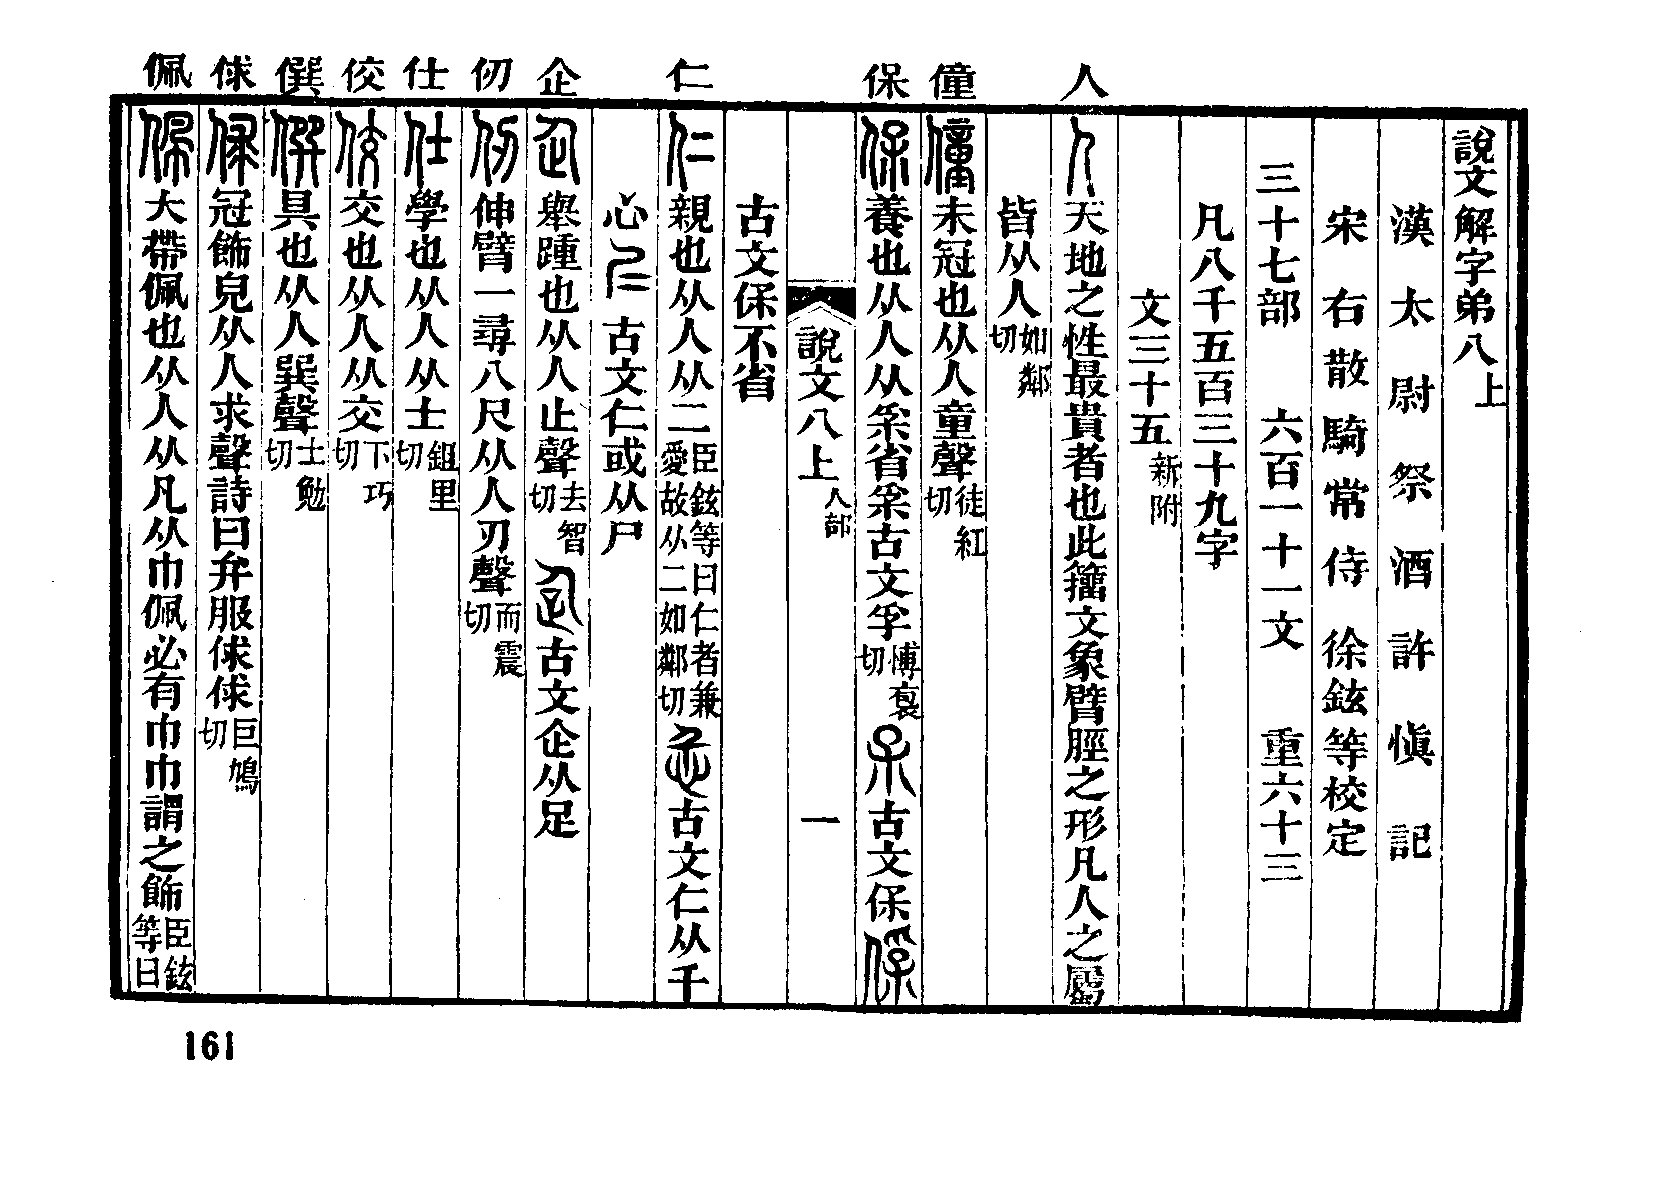 人
僮
保
仁
企
仞
仕
佼
僎
俅
佩
說文解字弟八上
漢太尉祭酒許愼記
宋右散騎常侍徐鉉等校定
三十七部 六百一十一文 重六十三
凡八千五百三十九字
文三十五新附
人天地之性最貴者也此籒文象臂脛之形凡人之屬
皆从人如鄰切
僮未冠也从人童聲徒紅切
保養也从人从𤓽省𤓽古文孚博袌切𤓽古文保𠈃
說文八上 人部 一
古文保不省
仁親也从人从二臣鉉等曰仁者兼愛故从二如鄰切忎古文仁从千
心𡰥古文仁或从尸
企舉踵也从人止聲去智切𠈮古文企从足
仞伸臂一尋八尺从人刃聲而震切
仕學也从人从士鉏里切
佼交也从人从交下巧切
僎具也从人巽聲士勉切
俅冠飾皃从人求聲詩曰弁服俅俅巨鳩切
佩大帶佩也从人从凡从巾佩必有巾巾謂之飾臣鉉等曰
161